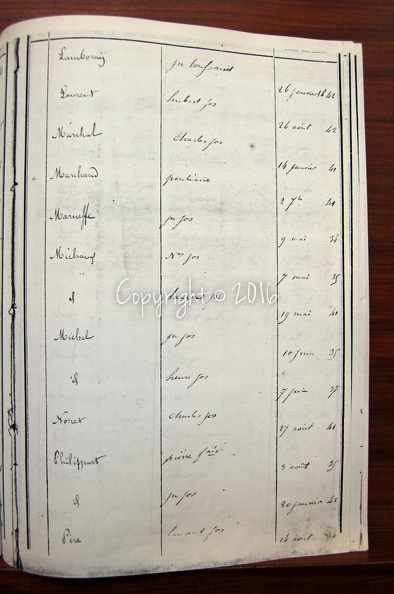 Lamboray jn toussaint 26 janvier 1842
Laurent hubert jos 26 août 42
Maréchal Charles jos 14 janvier 41
Marchand 2 7bre 41
Marneffe jn jos 9 mai 34
Michaux Nas jos 7 mai 35
id jos 19 mai 41
Michel jn jos 10 juin 35
id henri jos 7 juin 37
Noiret Charles jos 27 août 41
Philippart pierre 3 août 35
id jn jos 20 janvier 42
Pire jos 14 août
Copyright © 2016